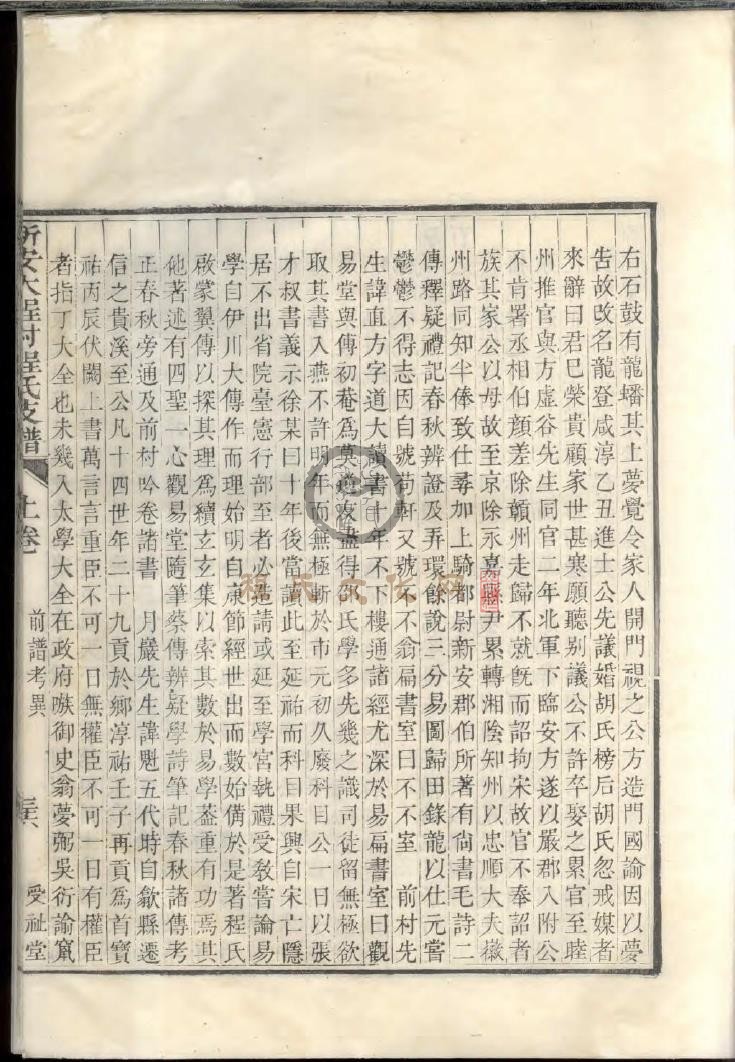 右石鼓有龍蟠其上夢覺令家人開門視之公方造門國諭因以夢
告故改名龍登咸淳乙丑進士公先議婚胡氏榜后胡氏忽戒媒者
來辭曰君巳榮貴顧家世甚寒願聽别議公不許卒娶之累官至睦
州推官與方虛谷先生同官二年北軍下臨安方遂以嚴郡入附公
不肯署丞相伯顔差除贛州走歸不就旣而詔拘宋故官不奉詔者
族其家公以母故至京除永嘉縣尹累轉湘陰知州以忠順大夫徽
州路同知半俸致仕尋加上騎都尉新安郡伯所著有尙書毛詩二
傳釋疑禮記春秋辨證及弄環餘說三分易圖歸田錄龍以仕元嘗
鬱鬱不得志因自號茍軒又號不不翁扁書室曰不不室　前村先
生諱直方字道大讀書十年不下樓通諸經尤深於易扁書室曰觀
易堂與傳初菴爲莫逆友盡得邵氏學多先幾之識司徒留無極欲
取其書入燕不許明年而無極斬於市元初久廢科目公一日以張
才叔書義示徐某曰十年後當讀此至延祐而科目果興自宋亡隱
居不出省院臺憲行部至者必造請或延至學宮執禮受敎嘗論易
學曰伊川大傳作而理始明自康節經世出而數始備於是著程氏
啟蒙翼傳以探其理爲續玄玄集以索其數於易學葢重有功焉其
他著述有四聖一心觀易堂隨筆蔡傳辨疑學詩筆記春秋諸傳考
正春秋旁通及前村吟卷諸書　月嚴先生諱魁五代時自歙縣遷
信之貴溪至公凡十四世年二十九貢於鄉淳祐壬子再貢爲首寶
祐丙辰伏闕上書萬言言重臣不可一日無權臣不可一日有權臣
者指丁大全也未幾入太學大全在政府嗾御史翁夢弼吳衍諭竄
新安大程村程氏支譜
上卷
前譜考異
受祉堂